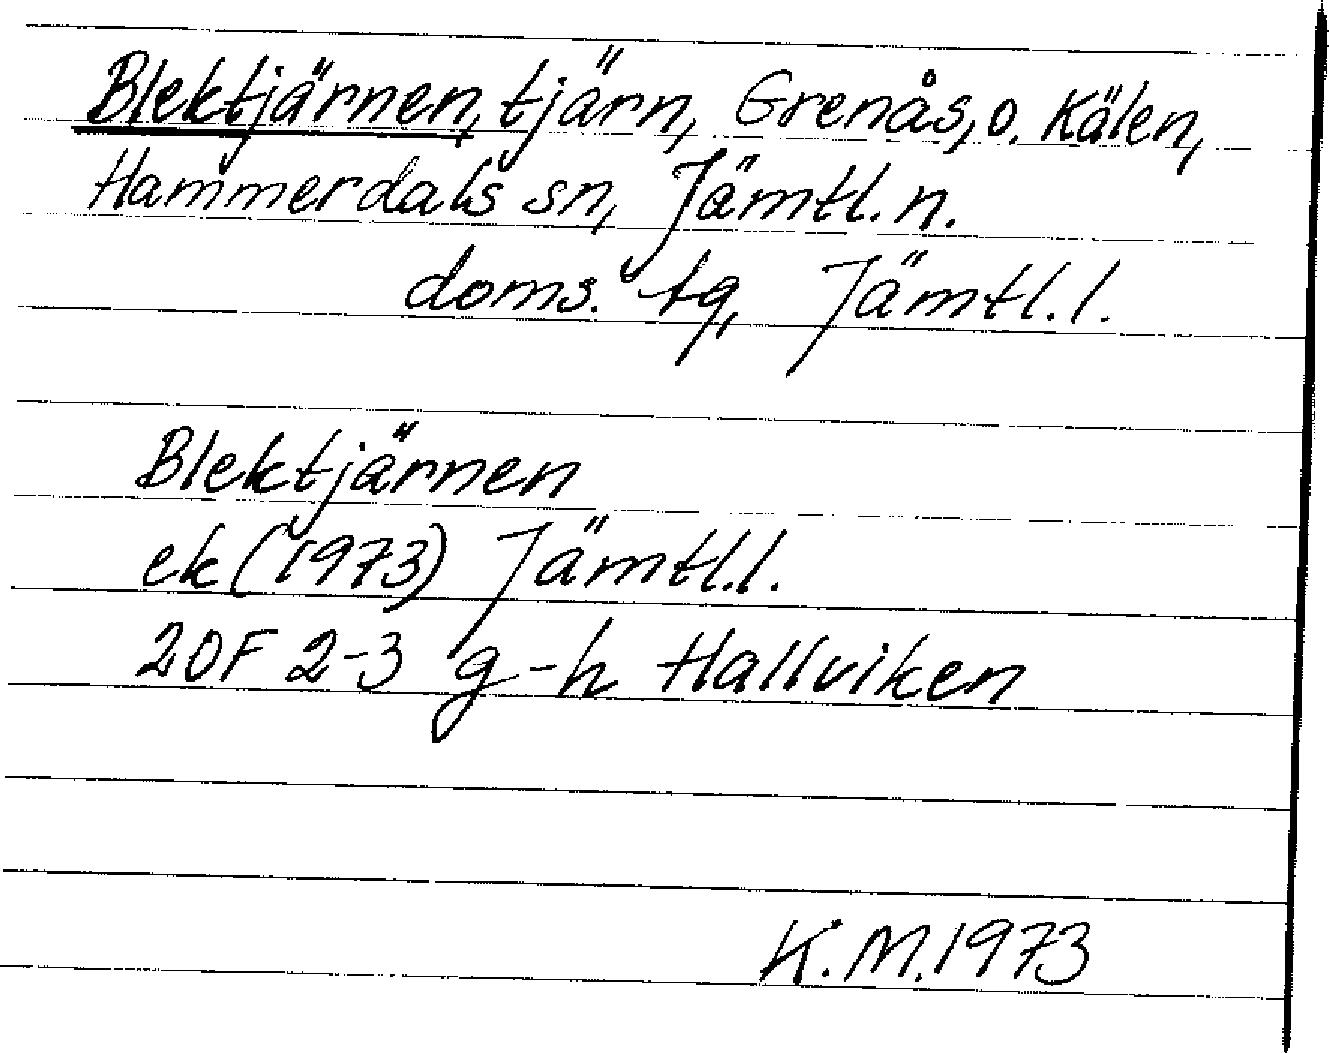 Blektjärnen, tjärn, Grenås, o. Kälen,
Hammerdals sn, Jämtl. n.
doms. tg, Jämtl. l.
Blektjärnen
ek (1973) Jämtl. l.
20F 2-3 g-h Hallviken
K. M. 1973